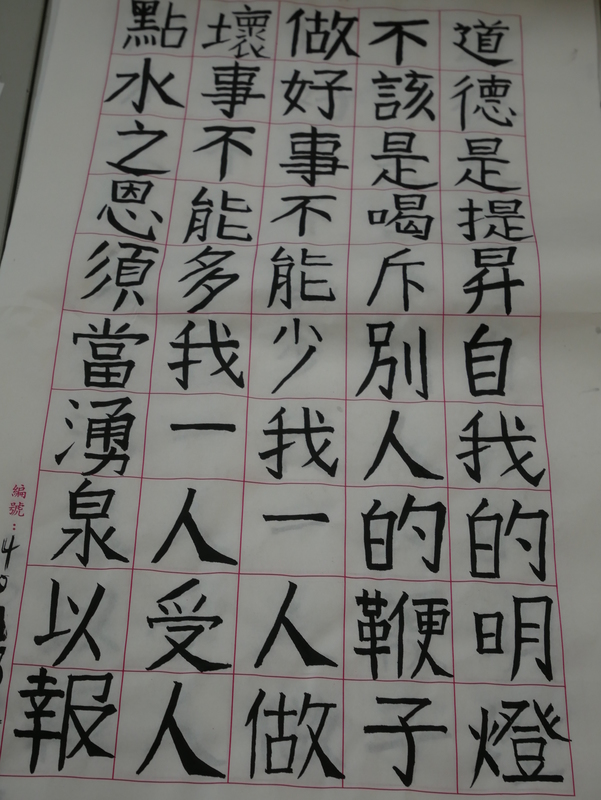 道德是提昇自我的明燈
不該是喝斥別人的鞭子
做好事不能少我一人做
壞事不能多我一人受人
點水之恩須當湧泉以報
編號：